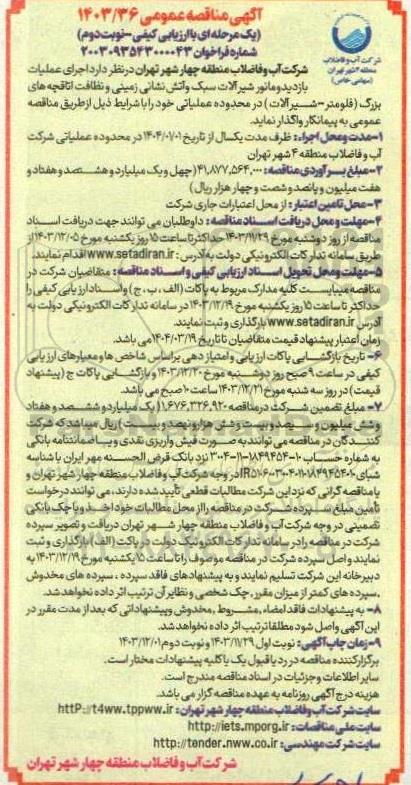 آگهی مناقصه عمومی ۱۴۰۳/۳۶
(یک مرحله ای با ارزیابی کیفی -نوبت دوم)
شماره فراخوان ۲۰۰۳۰۹۳۵۴۳۰۰۰۰۴۳
شرکت آب و فاضلاب
منطقه ۴ شهر تهران
(سهامی خاص)
شرکت آب و فاضلاب منطقه چهار شهر تهران در نظر دارد اجرای عملیات
بازدید و مانور شیرآلات سبک و آتش نشانی زمینی و نظافت اتاقچه های
بزرگ (فلومتر-شیرآلات) در محدوده عملیاتی خود را با شرایط ذیل از طریق مناقصه
عمومی به پیمانکار واگذار نماید.
۱-مدت و محل اجراء: ظرف مدت یکسال از تاریخ ۱۴۰۴/۰۱/۰۱ در محدوده عملیاتی شرکت
آب و فاضلاب منطقه ۴ شهر تهران
۲-مبلغ برآوردی مناقصه: ۴۱,۸۷۷,۵۶۴,۰۰۰ (چهل و یک میلیارد و هشتصد و هفتاد و
هفت میلیون و پانصد و شصت و چهار هزار ریال)
۳-محل تامین اعتبار: از محل اعتبارات جاری شرکت
۴-مهلت و محل دریافت اسناد مناقصه: داوطلبان می توانند جهت دریافت اسناد
مناقصه از روز دوشنبه مورخ ۱۴۰۳/۱۱/۲۹ حداکثر تا ساعت ۱۵ روز یکشنبه مورخ ۱۴۰۳/۱۲/۰۵ از
طریق سامانه تدارکات الکترونیکی دولت به آدرس: www.setadiran.ir اقدام نمایند.
۵-مهلت و محل تحویل اسناد ارزیابی کیفی و اسناد مناقصه: متقاضیان شرکت در
مناقصه میبایست کلیه مدارک مربوط به پاکات (الف، ب، ج) و اسناد ارزیابی کیفی را
حداکثر تا ساعت ۱۵ روز یکشنبه مورخ ۱۴۰۳/۱۲/۱۹ در سامانه تدارکات الکترونیکی دولت به
آدرس www.setadiran.ir بارگذاری و ثبت نمایند.
زمان اعتبار پیشنهاد قیمت متقاضیان تا تاریخ ۱۴۰۴/۰۳/۱۹ می باشد.
۶- تاریخ بازگشایی پاکات ارزیابی و امتیاز دهی براساس شاخص ها و معیارهای ارزیابی
کیفی در ساعت ۹ صبح روز دوشنبه مورخ ۱۴۰۳/۱۲/۲۰ و بازگشایی پاکات ج (پیشنهاد
قیمت) در روز سه شنبه مورخ ۱۴۰۳/۱۲/۲۱ ساعت ۱۰ صبح می باشد.
۷- مبلغ تضمین شرکت در مناقصه ۱,۶۷۶,۳۲۶,۹۲۰ (یک میلیارد و ششصد و هفتاد
و شش میلیون و سیصد و بیست و شش هزار و نهصد و بیست) ریال میباشد که شرکت
کنندگان در مناقصه می توانند به صورت فیش واریزی نقدی و یا ضمانتنامه بانکی
به شماره حساب ۱۰-۱۸۴۹۴۵۴-۱۱-۳۰۰۴ نزد بانک قرض الحسنه مهر ایران با شناسه
در وجه شرکت آب و فاضلاب منطقه چهار شهر تهران و
یا مناقصه گرانی که نزد این شرکت مطالبات قطعی تأیید شده دارند، می توانند درخواست
تأمین مبلغ سپرده شرکت در مناقصه را از محل مطالبات خود اخذ و یا چک بانکی
تضمینی در وجه شرکت آب و فاضلاب منطقه چهار شهر تهران دریافت و تصویر سپرده
شرکت در مناقصه را در سامانه تدارکات الکترونیک دولت در پاکت (الف) بارگذاری و ثبت
نمایند و اصل سپرده شرکت در مناقصه موصوف را تا ساعت ۱۵ یکشنبه مورخ ۱۴۰۳/۱۲/۱۹ به
دبیرخانه این شرکت تسلیم نمایند و به پیشنهادهای فاقد سپرده، سپرده های مخدوش
،سپرده های کمتر از میزان مقرر، چک شخصی و نظایر آن ترتیب اثر داده نخواهد شد.
۸- به پیشنهادات فاقد امضاء، مشروط، مخدوش و پیشنهاداتی که بعد از مدت مقرر در
این آگهی واصل شود مطلقا ترتیب اثر داده نخواهد شد.
۹-زمان چاپ آگهی: نوبت اول ۱۴۰۳/۱۱/۲۹ و نوبت دوم ۱۴۰۳/۱۲/۰۱
برگزار کننده مناقصه در رد یا قبول یک یا کلیه پیشنهادات مختار است.
سایر اطلاعات و جزئیات در اسناد مناقصه مندرج است.
هزینه درج آگهی روزنامه به عهده مناقصه گزار می باشد.
سایت شرکت آب و فاضلاب منطقه چهار شهر تهران: httP://t4ww.tppww.ir
سایت ملی مناقصات: http://iets.mporg.ir
سایت شرکت مهندسی: http://tender.nww.co.ir
شرکت آب و فاضلاب منطقه چهار شهر تهران